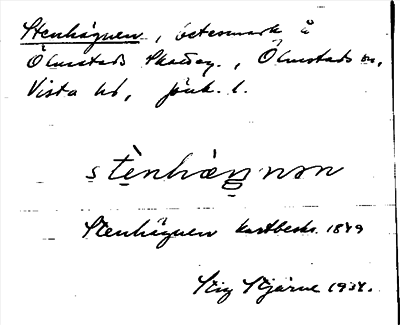 Stenhägnen, betesmark å
Ölmstads Skattag., Ölmstads sn,
Vista hd, Jönk. l.
stènhàgnən
Stenhägnen kartbeskr. 1849
Stig Stjärne 1934.